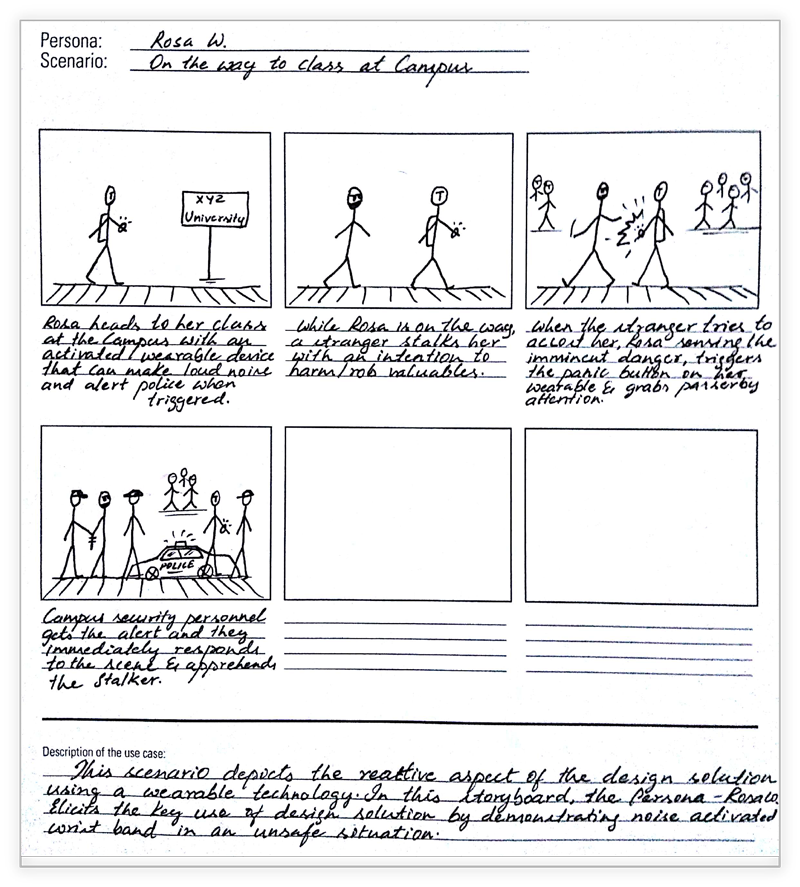 Persona: Rosa W.
Scenario: On the way to class at Campus
XYZ
University
Rosa heads to her class
at the Campus with an
activated wearable device
that can make loud noise
and alert police when
triggered.
While Rosa is on the way,
a stranger stalks her
with an intention to
harm/rob valuables.
When the stranger tries to
accost her, Rosa sensing the
imminent danger, triggers
the panic button on her
wearable & grabs passerby
attention.
POLICE
Campus security personnel
gets the alert and they
immediately responds
to the scene & apprehends
the Stalker.
Description of the use case:
This scenario depicts the reactive aspect of the design solution
using a wearable technology. In this storyboard, the Persona - Rosa W.
Elicits the key use of design solution by demonstrating noise activated
wrist band in an unsafe situation.